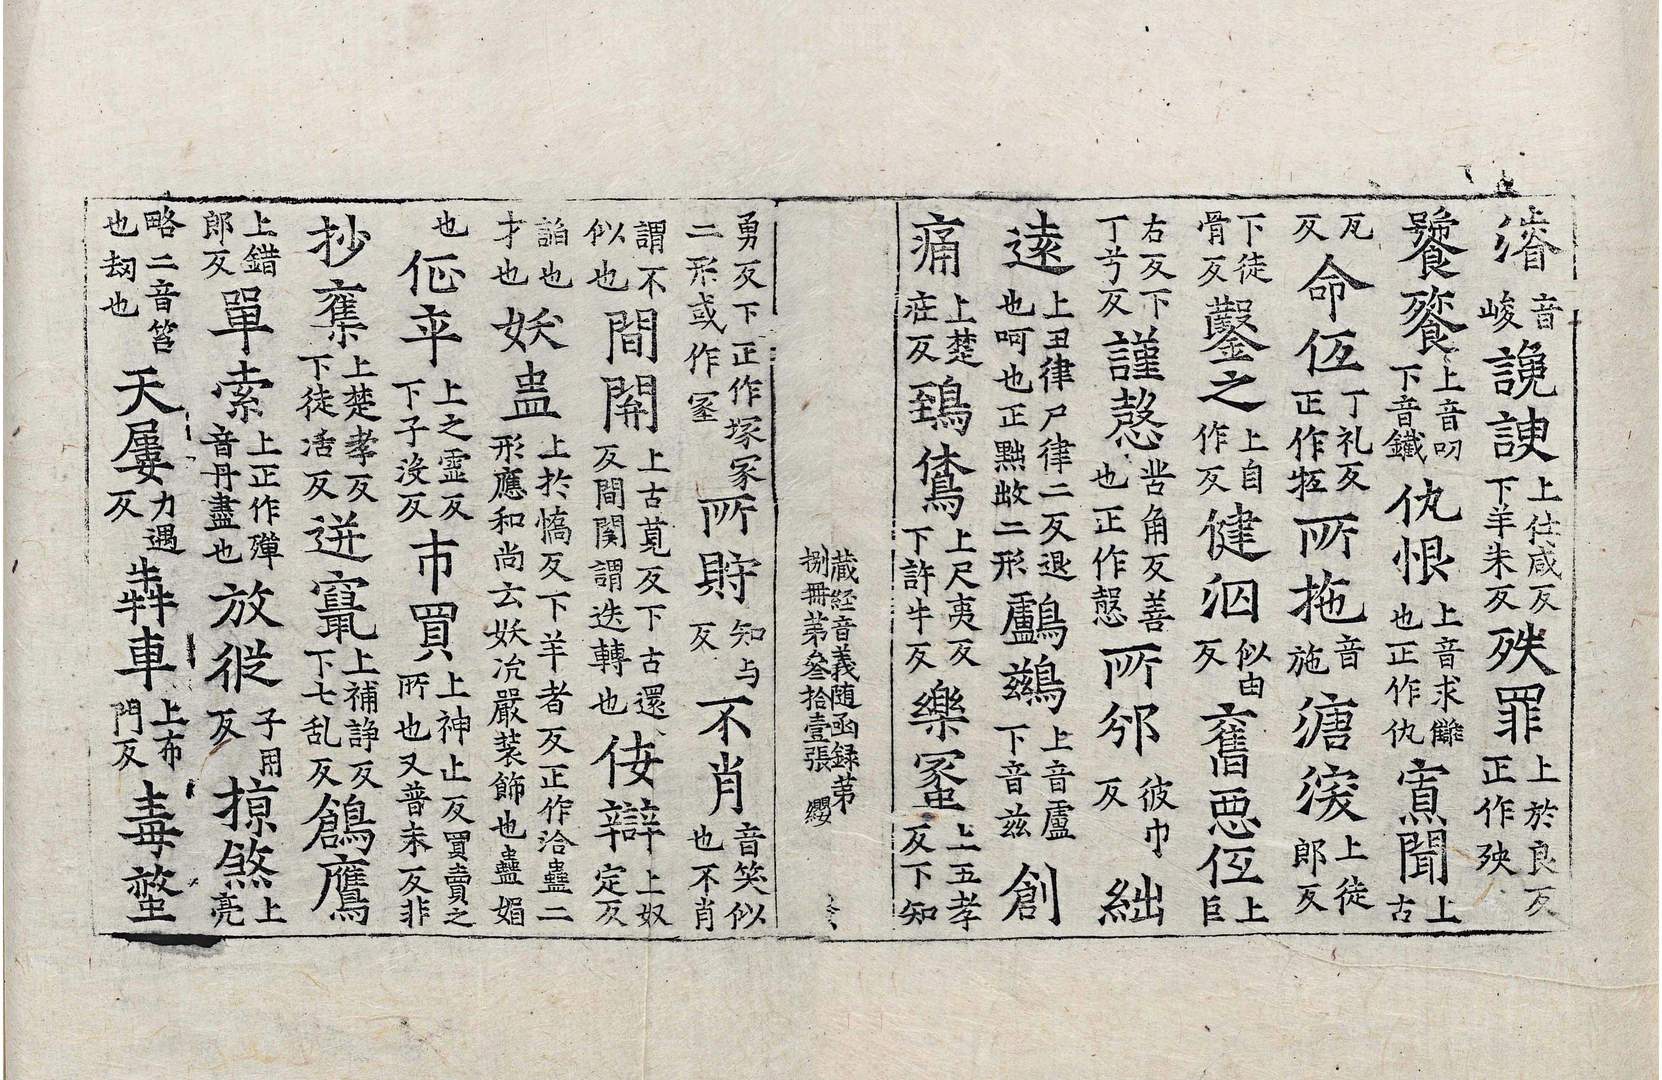 濬音峻讒諛上仕咸反下羊朱反殃罪上於良反正作殃
饕餮上音叨下音鐵仇恨上音求讎也正作仇寘聞上古
瓦反命伍丁礼反正作牴所拖音施溏浚上徒郎反
下徒骨反鑿之上自作反健泅似由反舊恶伍上巨
右反下丁兮反謹愨苦角反善也正作愨所邠彼巾反絀
遠上丑律尸律二反退也呵也正黜㕀二形鸕鷀上音盧下音兹創
痛上楚疰反鵄鵂上尺夷反下許牛反樂冢上五孝反下知
藏経音義随函録第捌冊第叄拾壹張 纓
勇反下正作塚冢二形或作冡所貯知与反不肖音笑似也不肖
謂不似也間關上古莧反下古還反間関謂迭轉也侫辯上奴定反
諂也才也妖蛊上扵憍反下羊者反正作冶蠱二形應和尚云妖冶嚴装飾也蠱媚
也征卒上之霊反下子没反市買上神止反買賣之所也又普未反非
抄奪上楚孝反下徒活反迸竄上補諍反下七乱反鴿鷹
上錯郎反單索上正作殫音丹盡也放從子用反掠煞上亮
略二音笞也劫也夭屢力遇反犇車上布門反毒螫